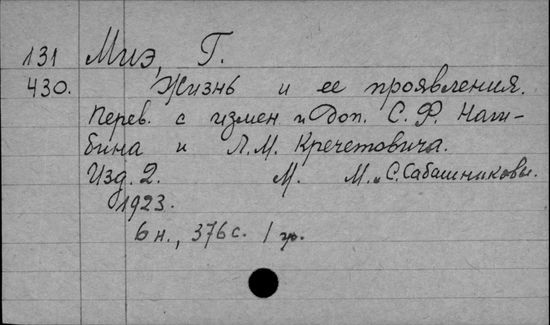 131 Миэ, Г.
430. Жизнь и ее проявления.
Перев. с измен и Доп. С. Ф. Наги-
бина и Л. М. Кречетовича.
Изд. 2. М. М. и С. Сабашниковы.
1923.
6 н., 376 с. 1 гр.